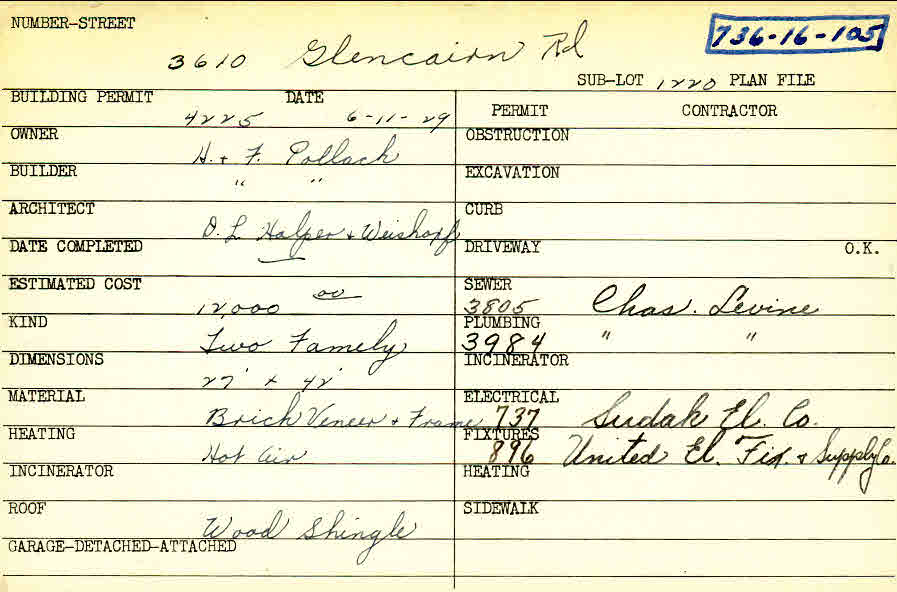 NUMBER-STREET
736-16-105
3610 Glencairn Rd
SUB-LOT 1220 PLAN FILE
BUILDING PERMIT DATE
4225 6-11-29
OWNER
H. & F. Pollack
BUILDER
" "
ARCHITECT
O. L. Halper & Weishopf
DATE COMPLETED
ESTIMATED COST
12,000 00
KIND
Two Famely
DIMENSIONS
27' x 42'
MATERIAL
Brick Veneer & Frame
HEATING
Hot Air
INCINERATOR
ROOF
Wood Shingle
GARAGE-DETACHED-ATTACHED
PERMIT CONTRACTOR
OBSTRUCTION
EXCAVATION
CURB
DRIVEWAY O.K.
SEWER
3805 Chas. Levine
PLUMBING
3984 " "
INCINERATOR
ELECTRICAL
737 Sudak El. Co.
FIXTURES
896 United El. Fix. & Supply Co.
HEATING
SIDEWALK